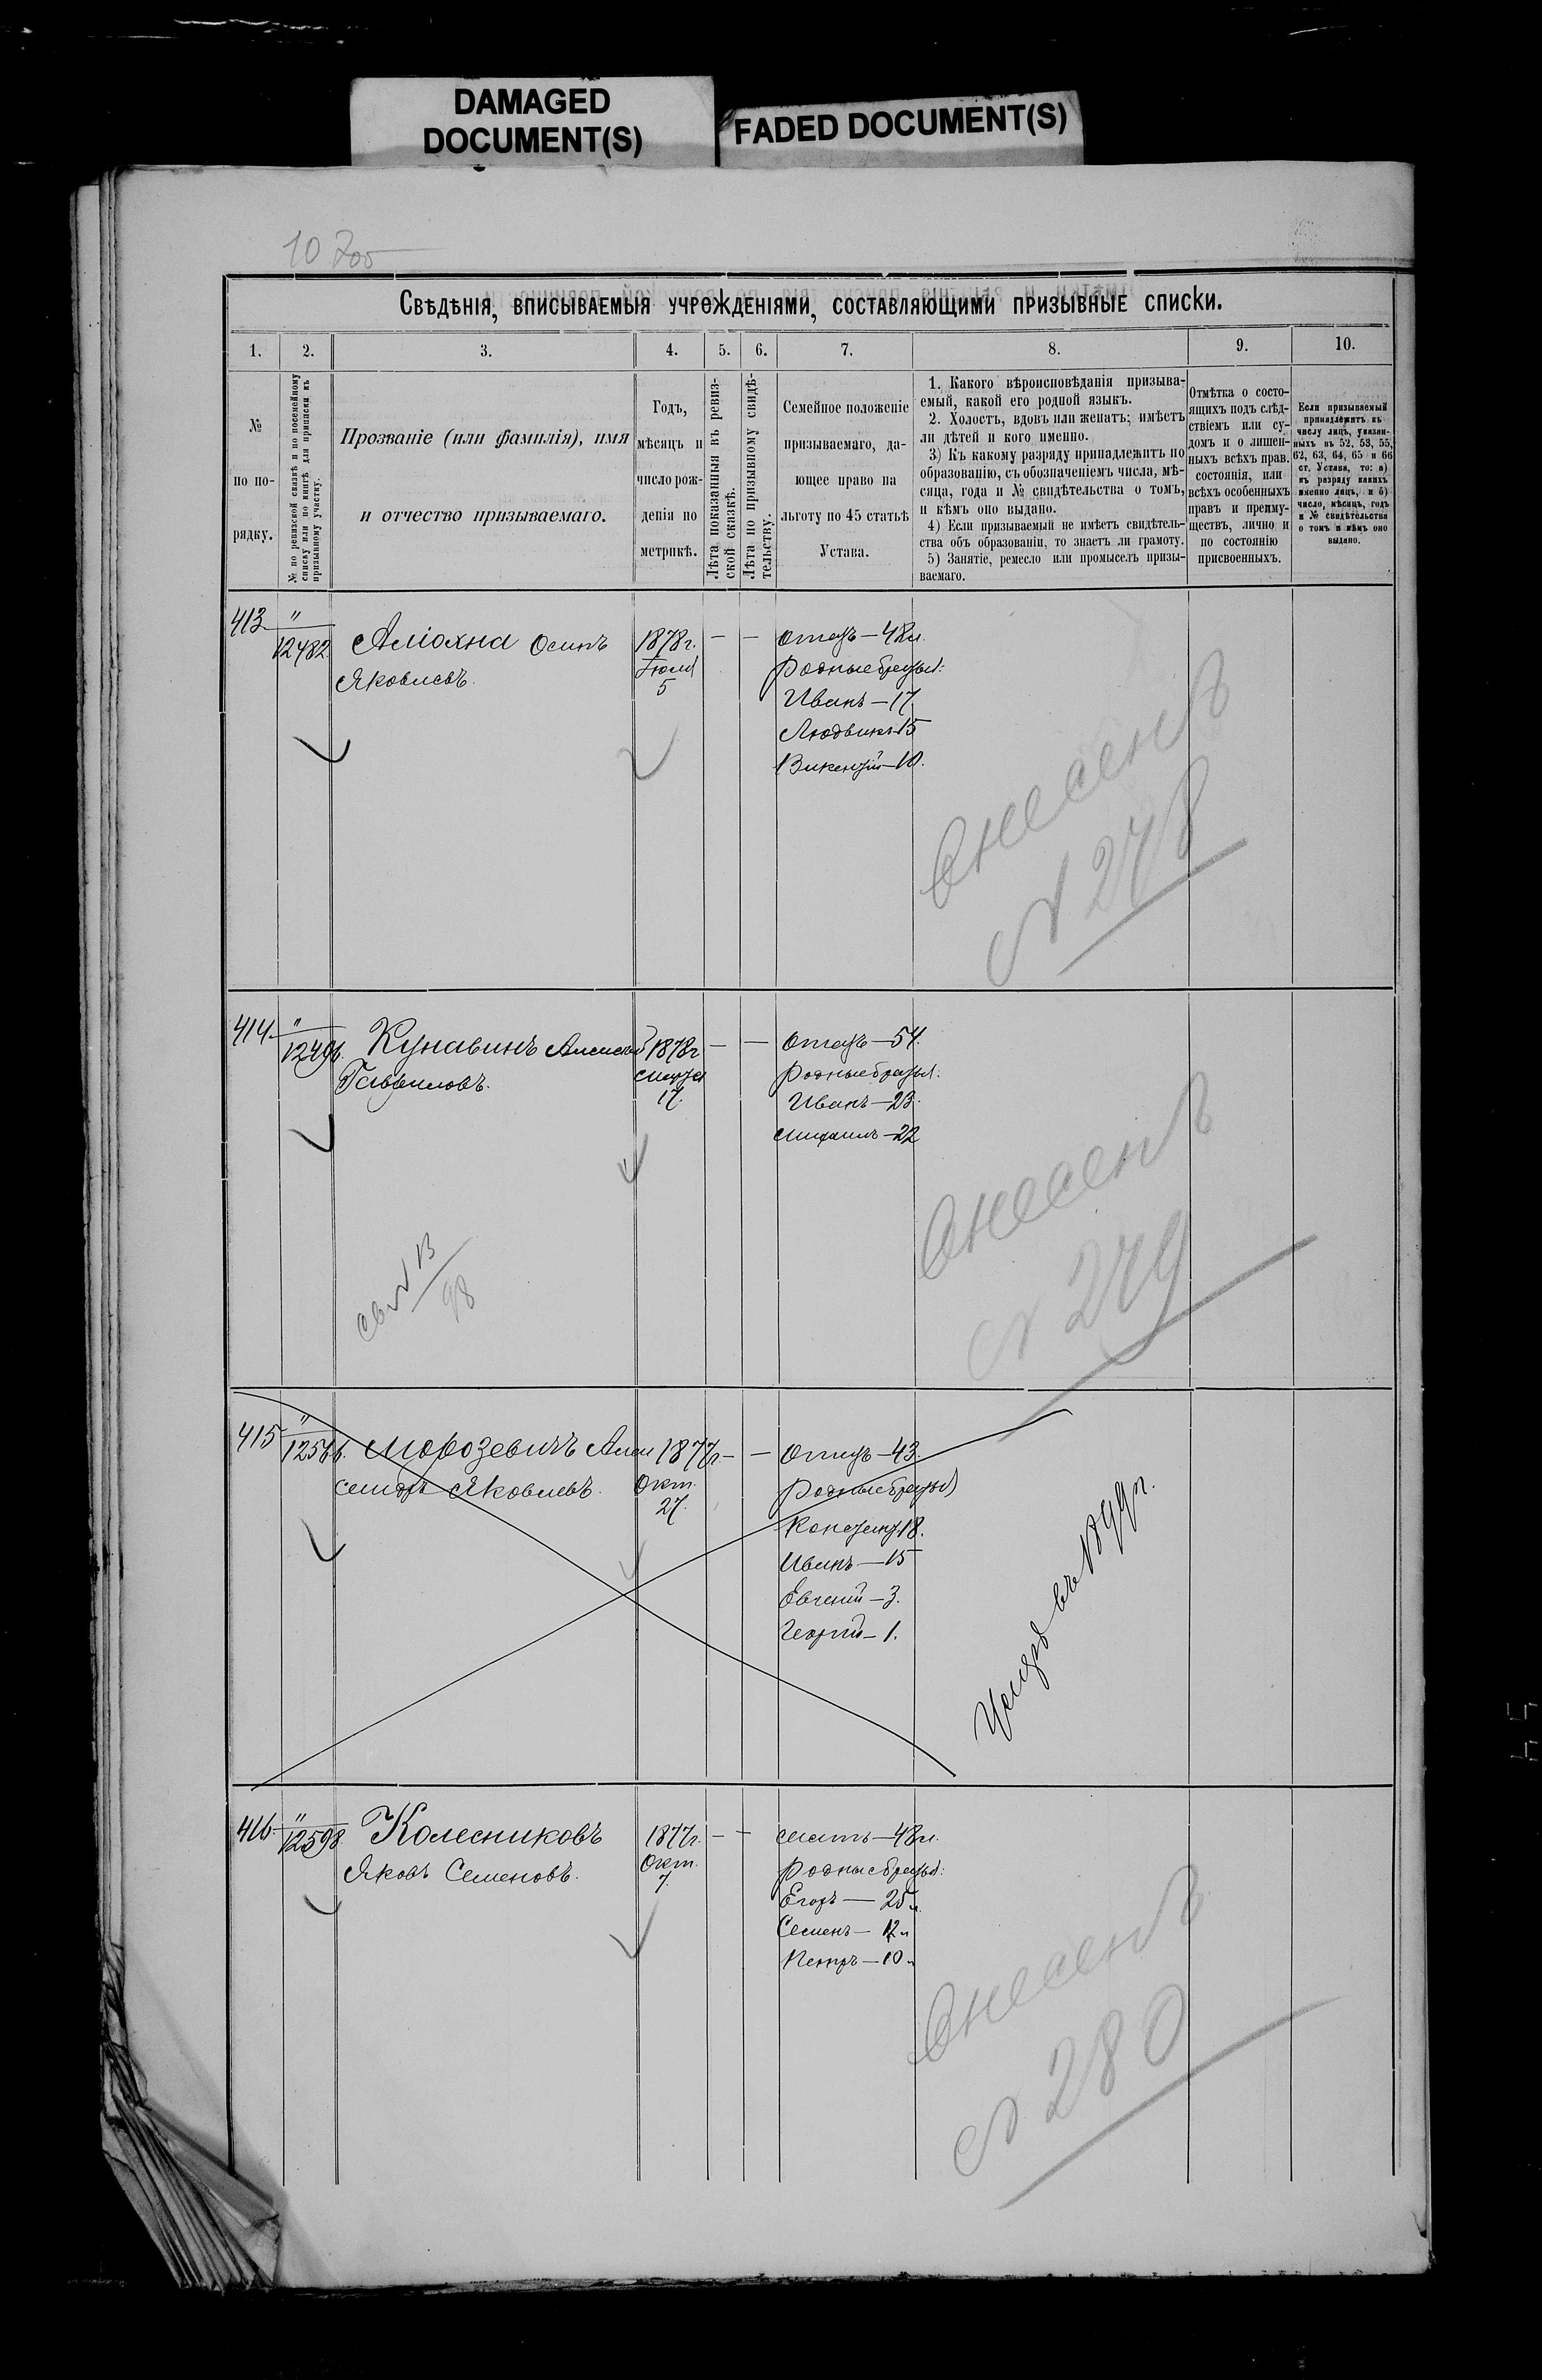 DAMAGED
DOCUMENT(S)
FADED DOCUMENT(S)
Свѣдѣнія, вписываемыя учрежденіями, составляющими призывные списки.
1. 2. 3. 4. 5. 6. 7. 8. 9. 10.
№
по по-
рядку.
№ по ревизской сказкѣ и по посемейному
списку или по книгѣ для приписки къ
призывному участку.
Прозваніе (или фамилія), имя
и отчество призываемаго.
Годъ,
мѣсяцъ и
число рож-
денія по
метрикѣ.
Лѣта показанныя въ ревиз-
ской сказкѣ.
Лѣта по призывному свидѣ-
тельству.
Семейное положеніе
призываемаго, да-
ющее право на
льготу по 45 статьѣ
Устава.
1. Какого вѣроисповѣданія призыва-
емый, какой его родной языкъ.
2. Холостъ, вдовъ или женатъ; имѣетъ
ли дѣтей и кого именно.
3) Къ какому разряду принадлежитъ по
образованію, съ обозначеніемъ числа, мѣ-
сяца, года и № свидѣтельства о томъ,
и кѣмъ оно выдано.
4) Если призываемый не имѣетъ свидѣтель-
ства объ образованіи, то знаетъ ли грамоту.
5) Занятіе, ремесло или промыселъ призы-
ваемаго.
Отмѣтка о состо-
ящихъ подъ слѣд-
ствіемъ или су-
домъ и о лишен-
ныхъ всѣхъ прав.
состоянія, или
всѣхъ особенныхъ
правъ и преиму-
ществъ, лично и
по состоянію
присвоенныхъ.
Если призываемый
принадлежитъ къ
числу лицъ, указан-
ныхъ въ 52, 53, 55,
62, 63, 64, 65 и 66
ст. Устава, то: а)
къ разряду какихъ
именно лицъ, и б)
число, мѣсяцъ, годъ
и № свидѣтельства
о томъ и кѣмъ оно
выдано.
413 " 12482 Осипъ 1878г. — — Отецъ — 48л.
Яковлевъ. Іюля Родные братья:
5 Иванъ — 17
Людвикъ 15
Викентій — 10.
внесенъ
№ 278
414 " 12496. Кунавинъ Алексѣй 1878г — — Отецъ — 54.
Гавриловъ. Марта Родные братья:
17. Иванъ — 23.
Михаилъ — 22
внесенъ
№ 279
св № 13
98
415 " Морозевичъ Алек 1877г — — Отецъ — 43.
сандръ Яковлевъ. Окт. Родные братья
27. Констант 18.
Иванъ — 15
Евгеній — 3.
Георгій — 1.
въ 1899г.
416. " 12598 Колесниковъ 1877г. — — Мать — 48л.
Яковъ Семеновъ. Окт. Родные братья:
7. Егоръ — 25л.
Семенъ — 12л
Петръ — 10л
внесенъ
№ 280